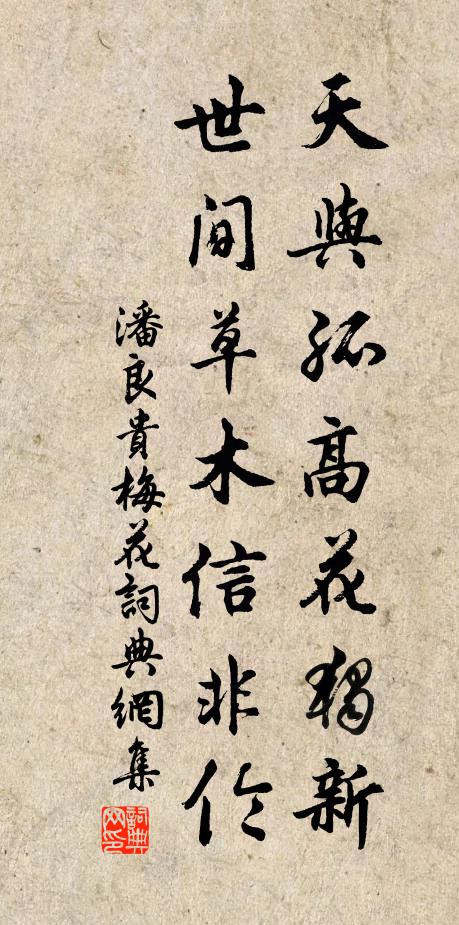 天與孤高花獨新
世間草木信非倫
潘良貴梅花詞典網集
詞典
网印